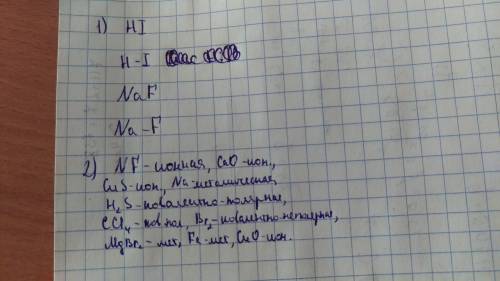 1) HI
H-I
NaF
Na-F
2) NF-ионная, CaO-ион.,
CuS-ион., Na-металическая,
H₂S-ковалентно-полярная,
CCl₄-ков пол, Br₂-ковалентно неполярная,
MgBr₂-мет, Fe-мет, CuO-ион.